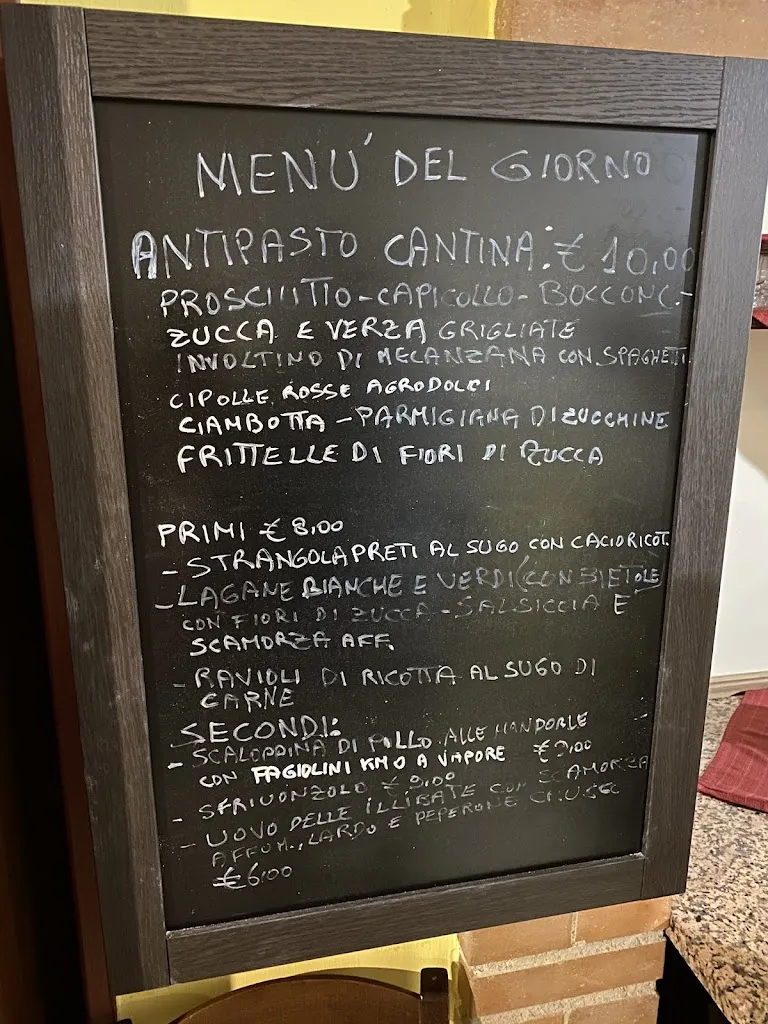 MENU' DEL GIORNO
ANTIPASTO CANTINA: € 10,00
PROSCIUTTO - CAPICOLLO - BOCCONC.-
ZUCCA E VERZA GRIGLIATE
INVOLTINO DI MELANZANA CON SPAGHETTI
CIPOLLE ROSSE AGRODOLCI
CIAMBOTTA - PARMIGIANA DI ZUCCHINE
FRITTELLE DI FIORI DI ZUCCA
PRIMI € 8,00
- STRANGOLAPRETI AL SUGO CON CACIORICOT.
- LAGANE BIANCHE E VERDI (CON BIETOLE
CON FIORI DI ZUCCA - SALSICCIA E
SCAMORZA AFF.
- RAVIOLI DI RICOTTA AL SUGO DI
CARNE
SECONDI:
- SCALOPPINA DI POLLO ALLE MANDORLE
CON FAGIOLINI KM0 A VAPORE € 9,00
- SFRIUONZOLO € 9,00
- UOVO DELLE ILLIBATE CON SCAMORZA
AFFUM., LARDO E PEPERONE
€ 6,00